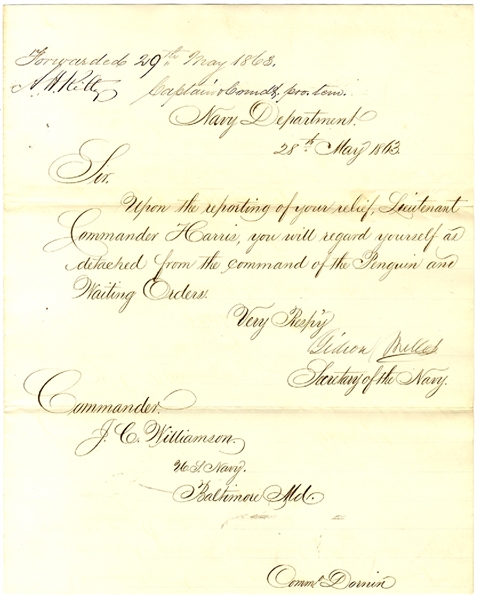 Forwarded 29th May 1863.
A. H. Kilty, Captain & Comdt. pro. tem.
Navy Department.
28th May 1863.
Sir.
Upon the reporting of your relief, Lieutenant
Commander Harris, you will regard yourself as
detached from the command of the Penguin and
Waiting Orders.
Very Respy
Gideon Welles
Secretary of the Navy.
Commander.
J. C. Williamson.
U.S. Navy.
Baltimore Md.
Dornin